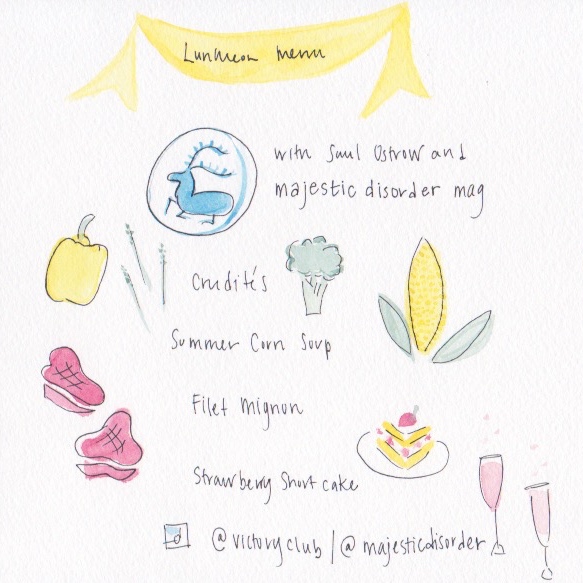 Luncheon menu
with Saul Ostrow and
majestic disorder mag
Crudités
Summer Corn Soup
Filet Mignon
Strawberry Short cake
@victoryclub | @majesticdisorder